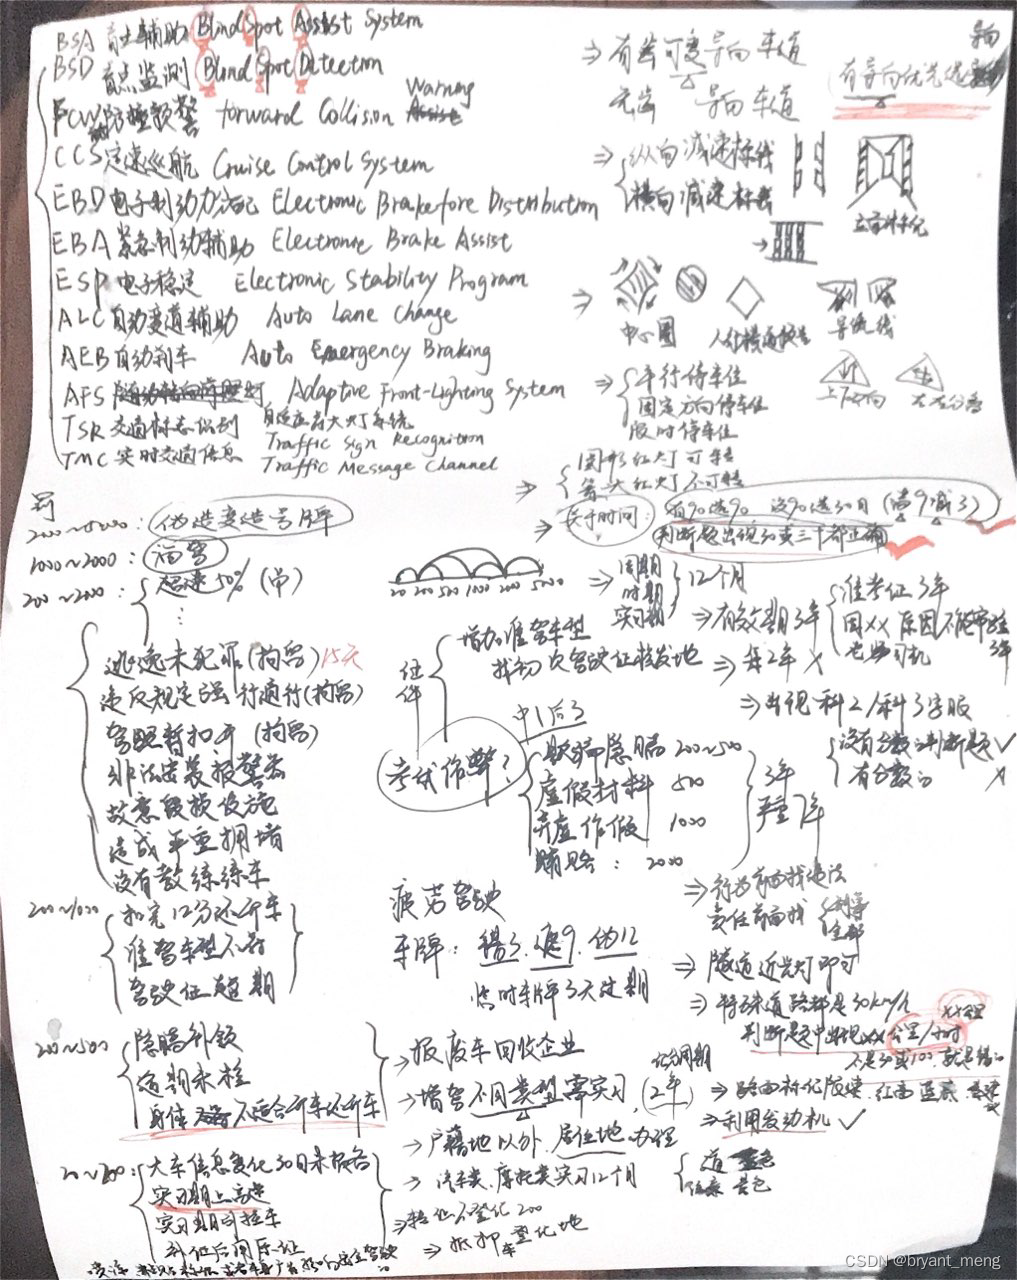 BSA 辅助 Blind Spot Assist System
BSD 盲点监测 Blind Spot Detection
FCW 防撞预警 forward Collision Warning
CCS 定速巡航 Cruise Control System
EBD 电子制动力分配 Electronic Brakeforce Distribution
EBA 紧急制动辅助 Electronic Brake Assist
ESP 电子稳定 Electronic Stability Program
ALC 自动变道辅助 Auto Lane Change
AEB 自动刹车 Auto Emergency Braking
AFS Adaptive Front-Lighting System
自适应大灯系统
TSR 交通标志识别 Traffic Sign Recognition
TMC 实时交通信息 Traffic Message Channel
⇒ 有齿可变导向车道
无齿 导向车道
⇒ 纵向减速标线
横向减速标线
⇒ 中心圈 人行横道预告 导流线
⇒ 平行停车位
固定方向停车位
限时停车位
上下 左右分离
⇒ 圆形红灯可转
箭头红灯不可转
⇒ 长于时间: 有90选90 没90选30日
判断题出现30或三十都正确
罚
200~5000: 伪造变造号牌
1000~2000: 酒驾
200~2000: 超速50% (吊)
逃逸未犯罪(拘留)15天
违反规定强行通行(拘留)
驾照暂扣开(拘留)
非法安装报警器
故意毁损设施
造成严重拥堵
没有教练练车
20 200 500 1000 2000 5000
⇒ 周期
时期
实习期
12个月
⇒ 有效期3年
准考证3年
⇒ 每2年 X
⇒ 出现科2/科3字眼
没有分数的判断题 ✓
有分数的 X
证件
增加准驾车型
找初次驾驶证核发地
考试作弊?
中1后3
欺骗隐瞒 200~500
虚假材料 500
弄虚作假 1000
贿赂: 2000
3年
严重 1年
200~1000
扣完12分还开车
准驾车型不符
驾驶证超期
疲劳驾驶
车牌: 错3. 退9. 伪12
临时车牌3天过期
⇒ 行为前面找违法
责任前面找
同等
全部
⇒ 隧道近光灯即可
⇒ 特殊道路都是30km/h
判断题中出现xx公里/小时
不是30或100, 就是错的
200~500
隐瞒补领
逾期未检
身体不适合开车还开车
→ 报废车回收企业
→ 增驾不同类型需实习
记分周期
(2年)
→ 户籍地以外, 居住地办理
→ 汽车类, 摩托类实习12个月
⇒ 转出不登记200
⇒ 抵押车登记地
⇒ 利用发动机 ✓
20~200: 大车信息变化30日未报备
实习期上高速
实习期间拉车
CSDN @bryant_meng